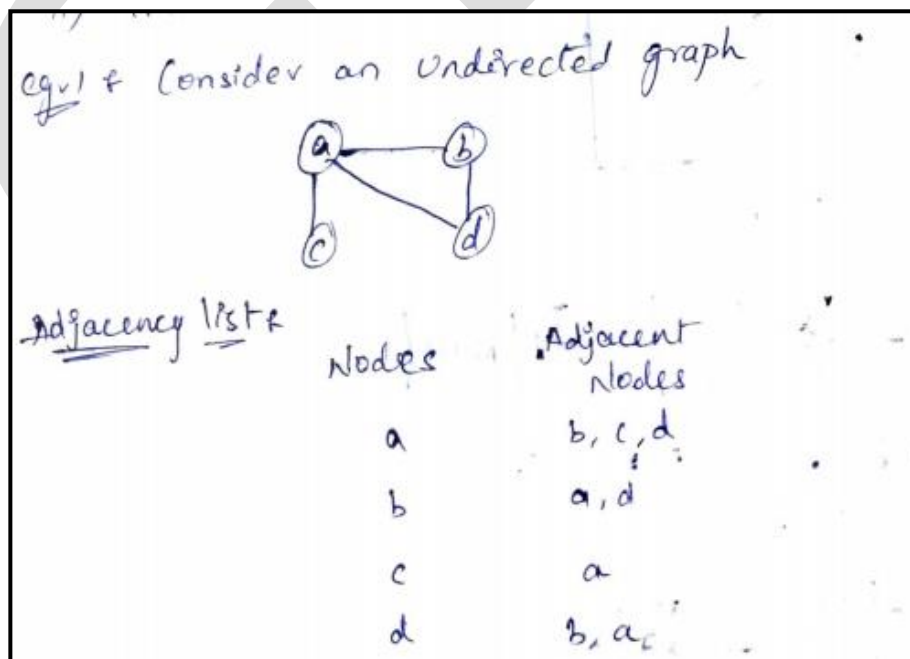 Consider an undirected graph
a b
c d
Adjacency list
Nodes Adjacent
Nodes
a b, c, d
b a, d
c a
d b, a